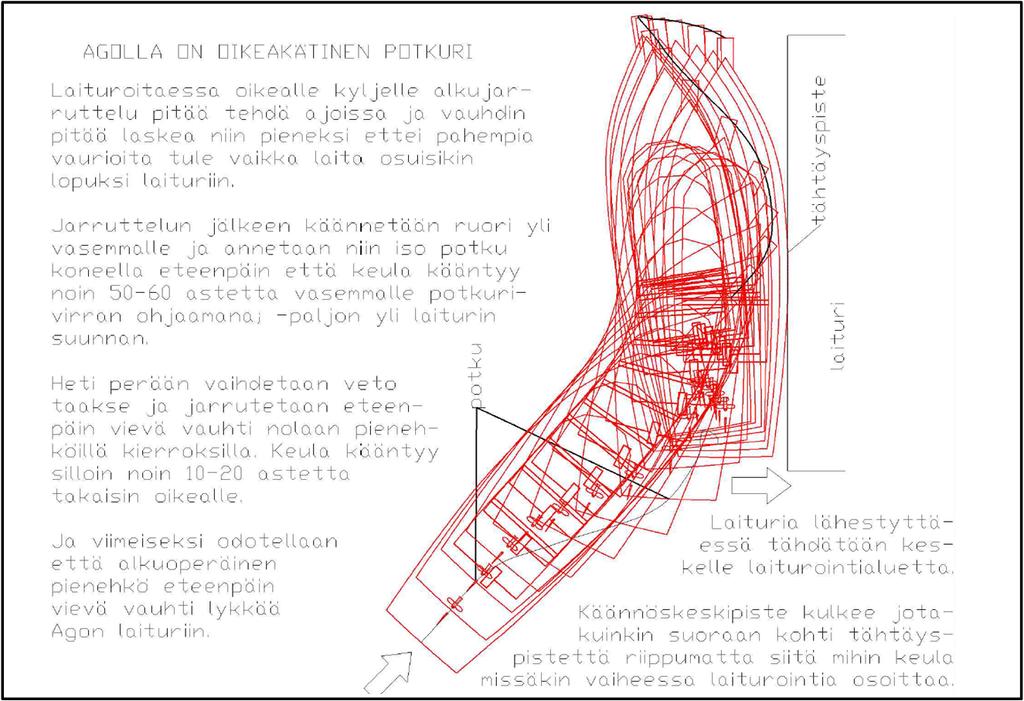 AGOLLA ON OIKEAKÄTINEN POTKURI
Laituroitaessa oikealle kyljelle alkujar-
ruttelu pitää tehdä ajoissa ja vauhdin
pitää laskea niin pieneksi ettei pahempia
vaurioita tule vaikka laita osuisikin
lopuksi laituriin.
Jarruttelun jälkeen käännetään ruori yli
vasemmalle ja annetaan niin iso potku
koneella eteenpäin että keula kääntyy
noin 50-60 astetta vasemmalle potkuri-
virran ohjaamana; -paljon yli laiturin
suunnan.
Heti perään vaihdetaan veto
taakse ja jarrutetaan eteen-
päin vievä vauhti nolaan pieneh-
köillä kierroksilla. Keula kääntyy
silloin noin 10-20 astetta
takaisin oikealle.
Ja viimeiseksi odotellaan
että alkuoperäinen
pienehkö eteenpäin
vievä vauhti lykkää
Agon laituriin.
potku
tähtäyspiste
laituri
Laituria lähestyttä-
essä tähdätään kes-
kelle laiturointialuetta.
Käännöskeskipiste kulkee jota-
kuinkin suoraan kohti tähtäys-
pistettä riippumatta siitä mihin keula
missäkin vaiheessa laiturointia osoittaa.